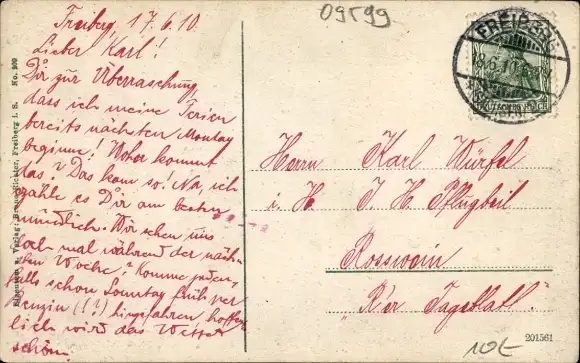 09599
Freiberg, 17.6.10.
Lieber Karl!
Dir zur Überraschung,
dass ich meine Ferien
bereits nächsten Montag
beginne! Woher kommt
das? Das kam so! Na, ich
erzähle es Dir am besten
mündlich. Wir sehen uns
doch mal während der näch-
sten Woche? Komme jeden-
falls schon Sonntag früh per
(!?) hingefahren hoffent-
lich wird das Wetter
schön.
FREIBERG
18.6.10.
Herrn Karl Würfel
i. H. J. H. Pflugbeil
Rosswein
"R'er Tageblatt."
Eigentum u. Verlag: Bruno Richter, Freiberg i. S. No. 209
201561
10E